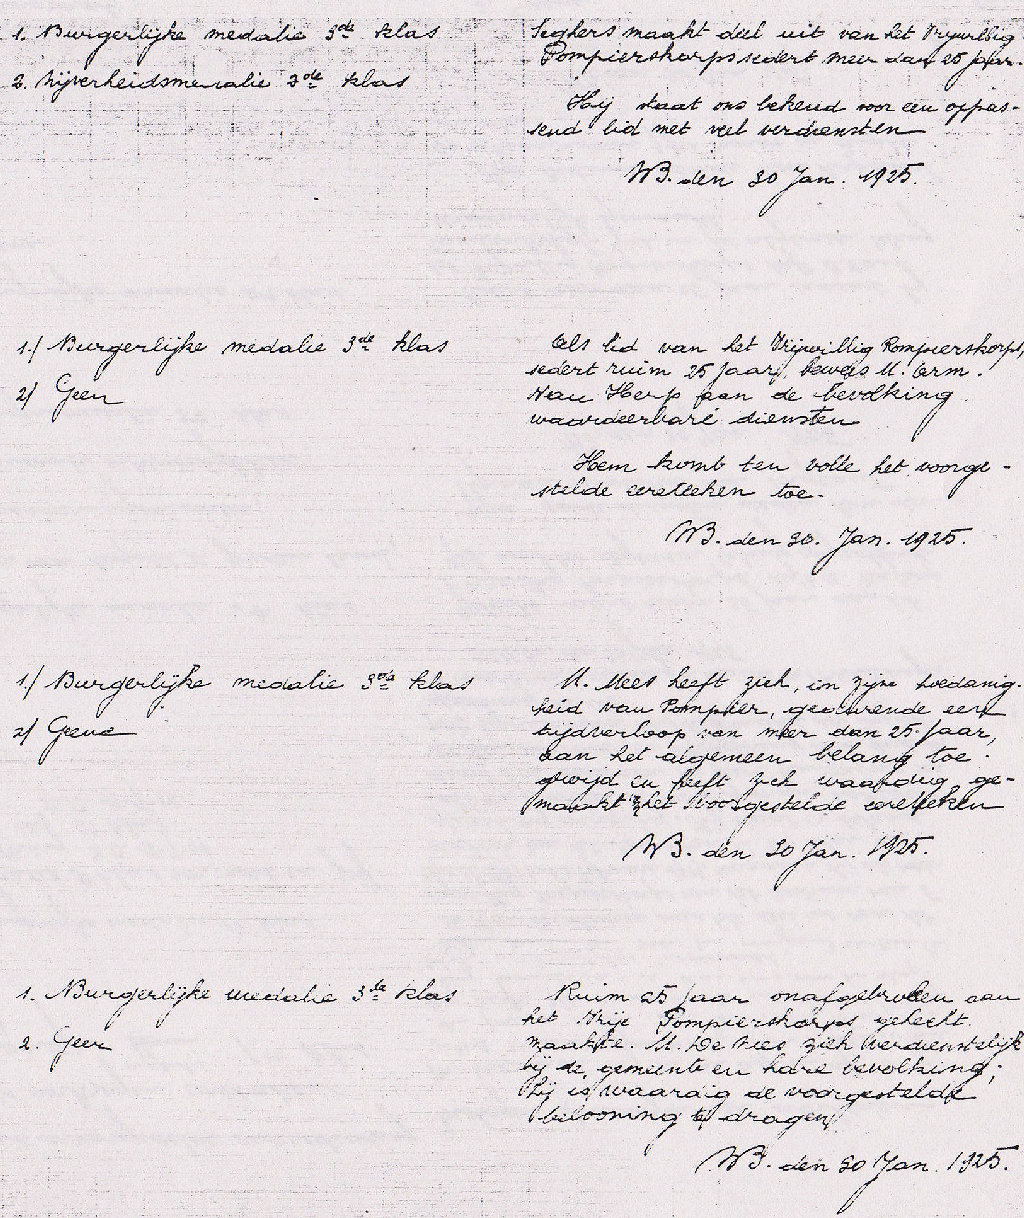 1. Burgerlijke medalie 3de klas
2. Nijverheidsmedalie 3de klas
Seghers maakt deel uit van het Vrijwillig
Pompierskorps sedert meer dan 25 jaar.
Hij staat ons bekend voor een oppas-
send lid met veel verdiensten
WB. den 30 Jan. 1925.
1./ Burgerlijke medalie 3de klas
2/ Geen
Als lid van het Vrijwillig Pompierskorps,
sedert ruim 25 jaar, bewees M.
Herp aan de bevolking
waardeerbare diensten
Hem komt ten volle het voorge-
stelde eereteeken toe.
WB. den 30. Jan. 1925.
1./ Burgerlijke medalie 3de klas
2/ Geene
M. Mees heeft zich, in zijne hoedanig-
heid van Pompier, gedurende een
tijdverloop van meer dan 25 jaar,
aan het algemeen belang toe-
gewijd en heeft zich waardig ge-
maakt het voorgestelde eereteeken
WB. den 30 Jan. 1925.
1. Burgerlijke medalie 3de klas
2. Geen
Ruim 25 jaar onafgebroken aan
het Vrije Pompierskorps gehecht
maakte M. De Mees zich verdienstelijk
bij de gemeente en hare bevolking;
hij is waardig de voorgestelde
belooning te dragen
WB. den 30 Jan. 1925.